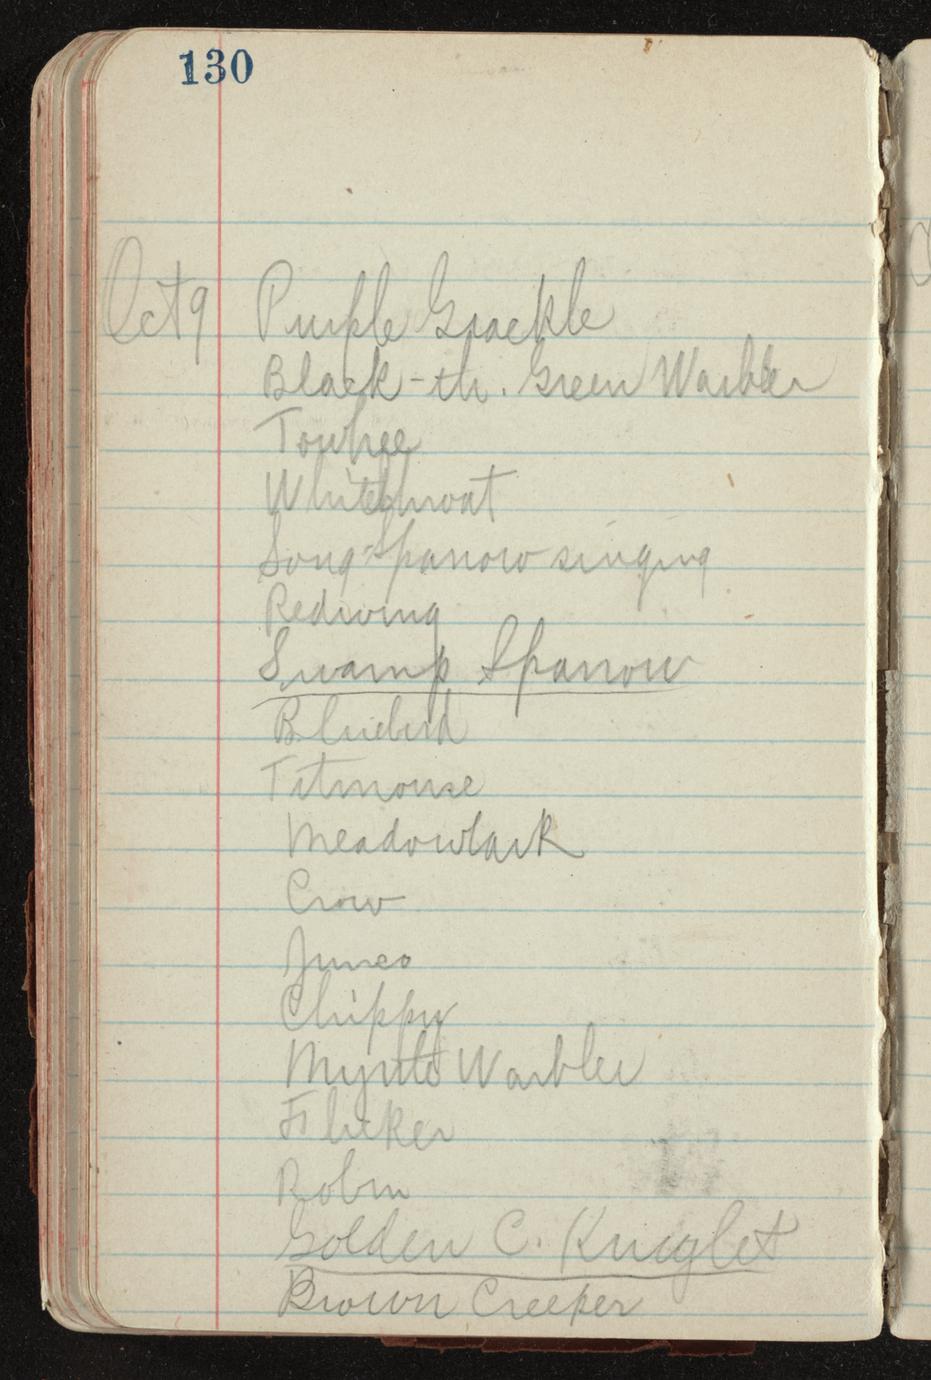 130
Oct 9 Purple Grackle
Black-th. Green Warbler
Towhee
Whitethroat
Song Sparrow singing
Redwing
Swamp Sparrow
Bluebird
Titmouse
Meadowlark
Crow
Junco
Chippy
Myrtle Warbler
Flicker
Robin
Golden C. Kinglet
Brown Creeper